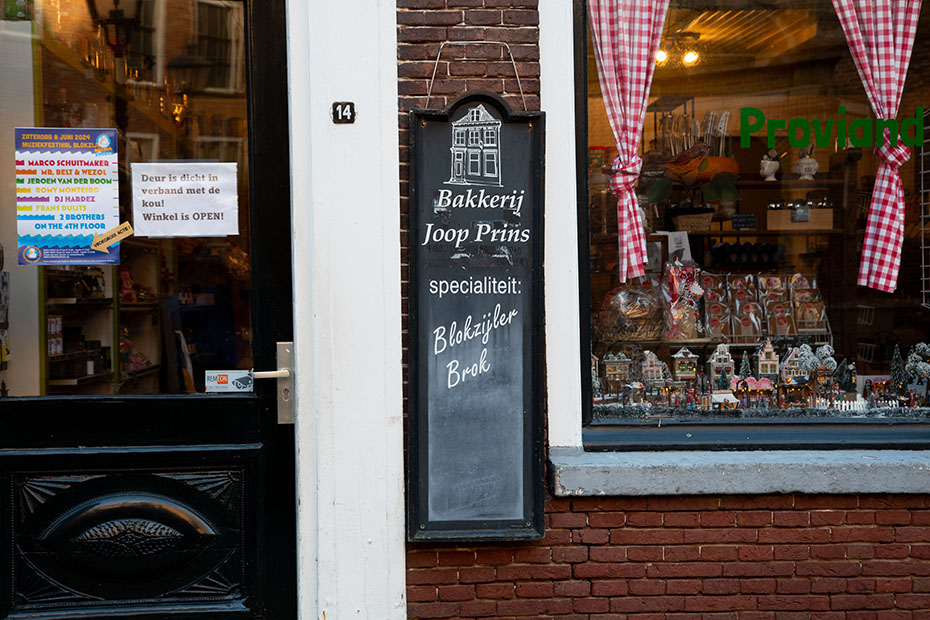 ZATERDAG 8 JUNI 2024
MUZIEKFESTIVAL BLOKZIJL
MARCO SCHUITMAKER
MR. BELT & WEZOL
JEROEN VAN DER BOOM
ROMY MONTEIRO
DJ HARDEZ
FRANS DUIJTS
2 BROTHERS
ON THE 4TH FLOOR
Deur is dicht in
verband met de
kou!
Winkel is OPEN!
14
Bakkerij
Joop Prins
specialiteit:
Blokzijler
Brok
Proviand